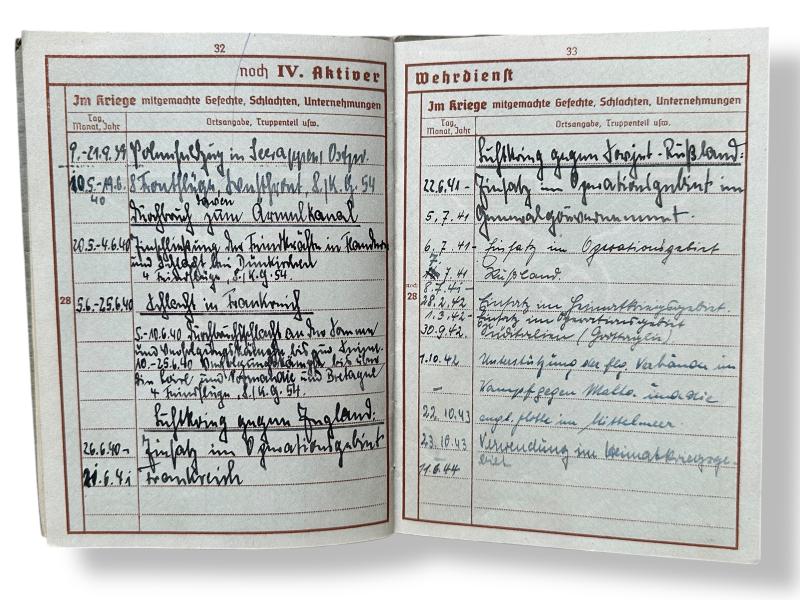 32
noch IV. Aktiver
Im Kriege mitgemachte Gefechte, Schlachten, Unternehmungen
Tag, Monat, Jahr
Ortsangabe, Truppenteil usw.
9.-21.9.39 Polenfeldzug in
10.5.-19.6.40 8 Frontflüge, Westfront, 8./K.G. 54
Durchbruch zum Ärmelkanal
20.5.-4.6.40 Einschließung der Feindkräfte in Flandern
und Schlacht bei Dünkirchen
4 Feindflüge, 8./K.G. 54.
28
5.6.-25.6.40 Schlacht in Frankreich
5.-10.6.40 Durchbruchschlacht an der Somme
und Verfolgungskämpfe bis zur
10.-25.6.40 Verfolgungskämpfe bis über
die und Normandie und Bretagne
4 Feindflüge, 8./K.G. 54.
Luftkrieg gegen England:
26.6.40- Einsatz im Operationsgebiet
21.6.41 Frankreich
33
Wehrdienst
Im Kriege mitgemachte Gefechte, Schlachten, Unternehmungen
Tag, Monat, Jahr
Ortsangabe, Truppenteil usw.
Luftkrieg gegen Sowjet-Rußland:
22.6.41- Einsatz im Operationsgebiet im
5.7.41 Generalgouvernement.
6.7.41- Einsatz im Operationsgebiet
7.7.41 Rußland.
noch 28
8.7.41-
28.2.42 Einsatz im Heimatkriegsgebiet.
1.3.42- Einsatz im Operationsgebiet
30.9.42. Süditalien
1.10.42 Unterstützung der Verbände im
- Kampf gegen Malta und die
22.10.43 engl. Flotte im Mittelmeer.
23.10.43 Verwendung im Heimatkriegsge-
- biet
11.6.44